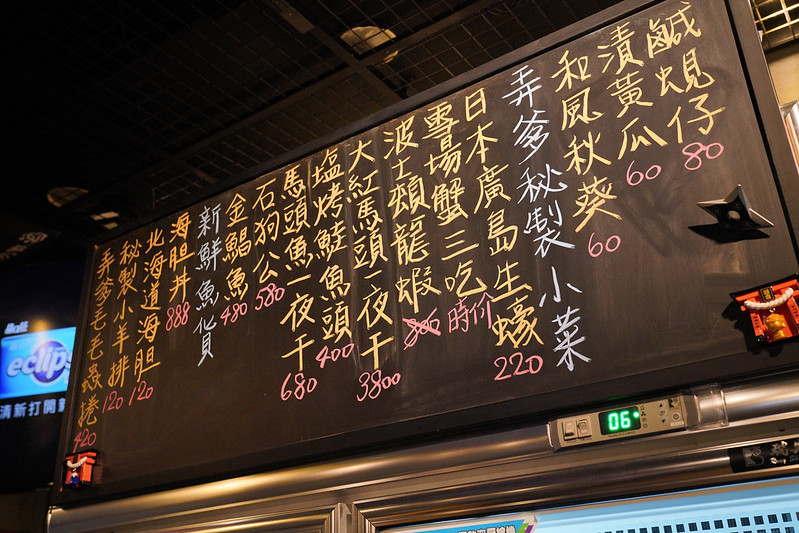 鹹蜆仔 80
漬黃瓜 60
和風秋葵 60
弄爹秘製小菜
日本廣島生蠔 220
雪場蟹三吃 時价
波士頓龍蝦
大紅馬頭一夜干 3800
塩烤鮭魚頭 400
馬頭魚一夜干 680
石狗公 580
金鯧魚 480
新鮮魚貨
海胆丼 888
北海道海胆 120
秘製小羊排 120
弄爹毛毛蟲捲 420
06
eclips
清新打開